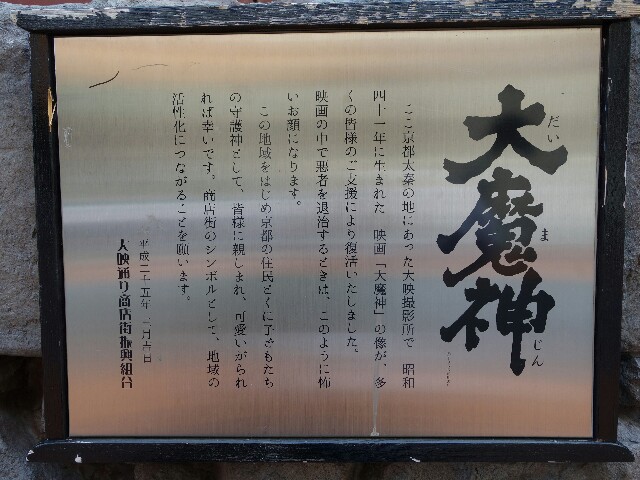 大魔神
だい ま じん
ここ京都太秦の地にあった大映撮影所で、昭和
四十一年に生まれた 映画「大魔神」の像が、多
くの皆様のご支援により復活いたしました。
映画の中で悪者を退治するときは、このように怖
いお顔になります。
この地域をはじめ京都の住民とくに子どもたち
の守護神として、皆様に親しまれ、可愛いがられ
れば幸いです。商店街のシンボルとして、地域の
活性化につながることを願います。
平成二十五年 月吉日
大映通り商店街振興組合